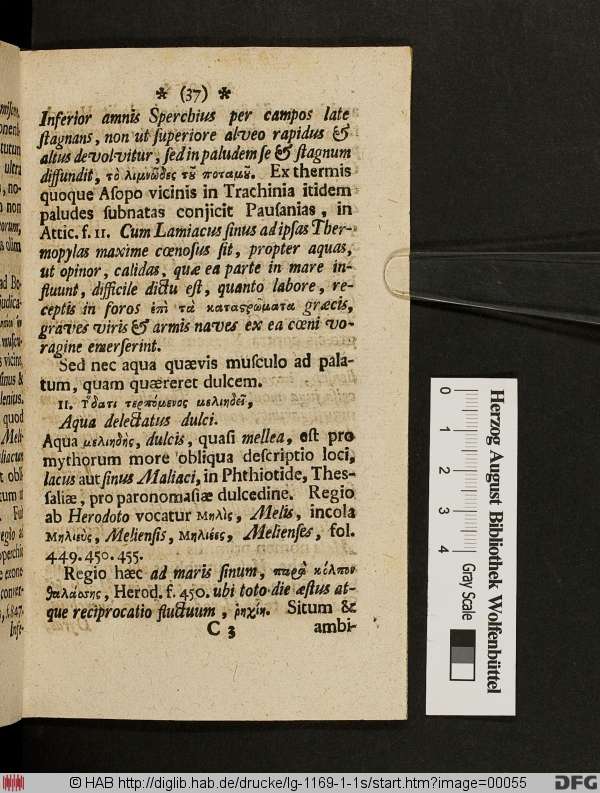 * (37) *
Inferior amnis Sperchius per campos late
ſtagnans, non ut ſuperiore alveo rapidus &
altus devolvitur, ſed in paludem ſe & ſtagnum
diffundit, τὸ λιμνῶδες τȣ̃ ποταμȣ̃. Ex thermis
quoque Aſopo vicinis in Trachinia itidem
paludes ſubnatas conjicit Pauſanias, in
Attic. f. 11. Cum Lamiacus ſinus ad ipſas Ther-
mopylas maxime cœnoſus ſit, propter aquas,
ut opinor, calidas, quæ ea parte in mare in-
fluunt, difficile dictu eſt, quanto labore, re-
ceptis in foros ἐπὶ τὰ καταϛρώματα græcis,
graves viris & armis naves ex ea cœni vo-
ragine emerſerint.
Sed nec aqua quævis muſculo ad pala-
tum, quam quæreret dulcem.
11. Ὕδατι τερπόμενος μελιηδεῖ,
Aqua delectatus dulci.
Aqua μελιηδὴς, dulcis, quaſi mellea, eſt pro
mythorum more obliqua deſcriptio loci,
lacus aut ſinus Maliaci, in Phthiotide, Theſ-
ſaliæ, pro paronomaſiæ dulcedine. Regio
ab Herodoto vocatur Μηλὶς, Melis, incola
Μηλιεὺς, Melienſis, Μηλιέες, Melienſes, fol.
449. 450. 455.
Regio hæc ad maris ſinum, παρὰ κόλπον
θαλάσσης, Herod. f. 450. ubi toto die æſtus at-
que reciprocatio fluctuum, ῥηχίη. Situm &
C 3 ambi-
Herzog August Bibliothek Wolfenbüttel
0 1 2 3 4
Gray Scale
© HAB http://diglib.hab.de/drucke/lg-1169-1-1s/start.htm?image=00055
DFG